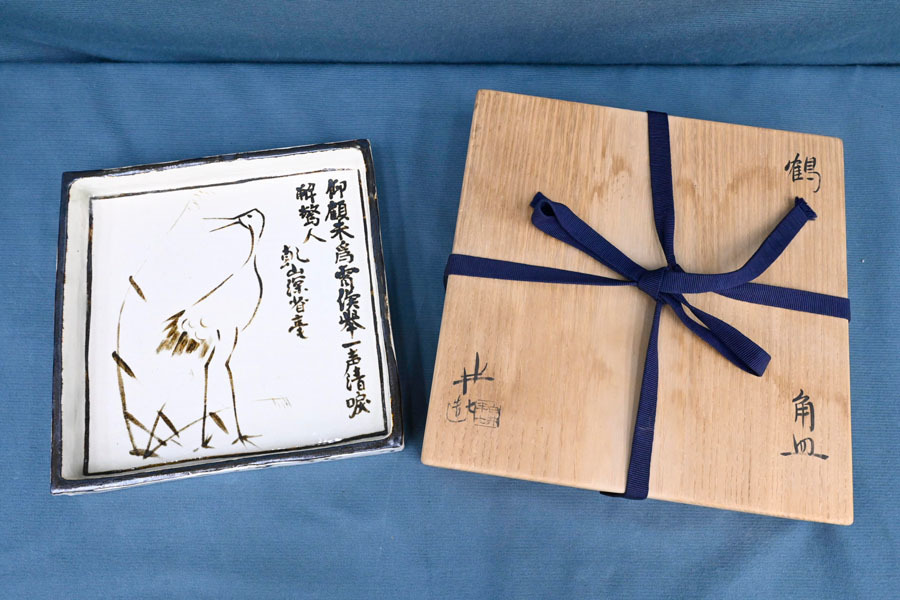 仰顧未為霄漢挙一声清唳
解驚人
乾山深省毫
鶴
角皿
造